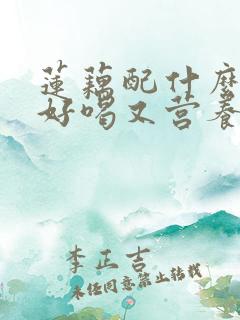 莲藕配什麽
好喝又营养
李正吉
未经同意禁止转载